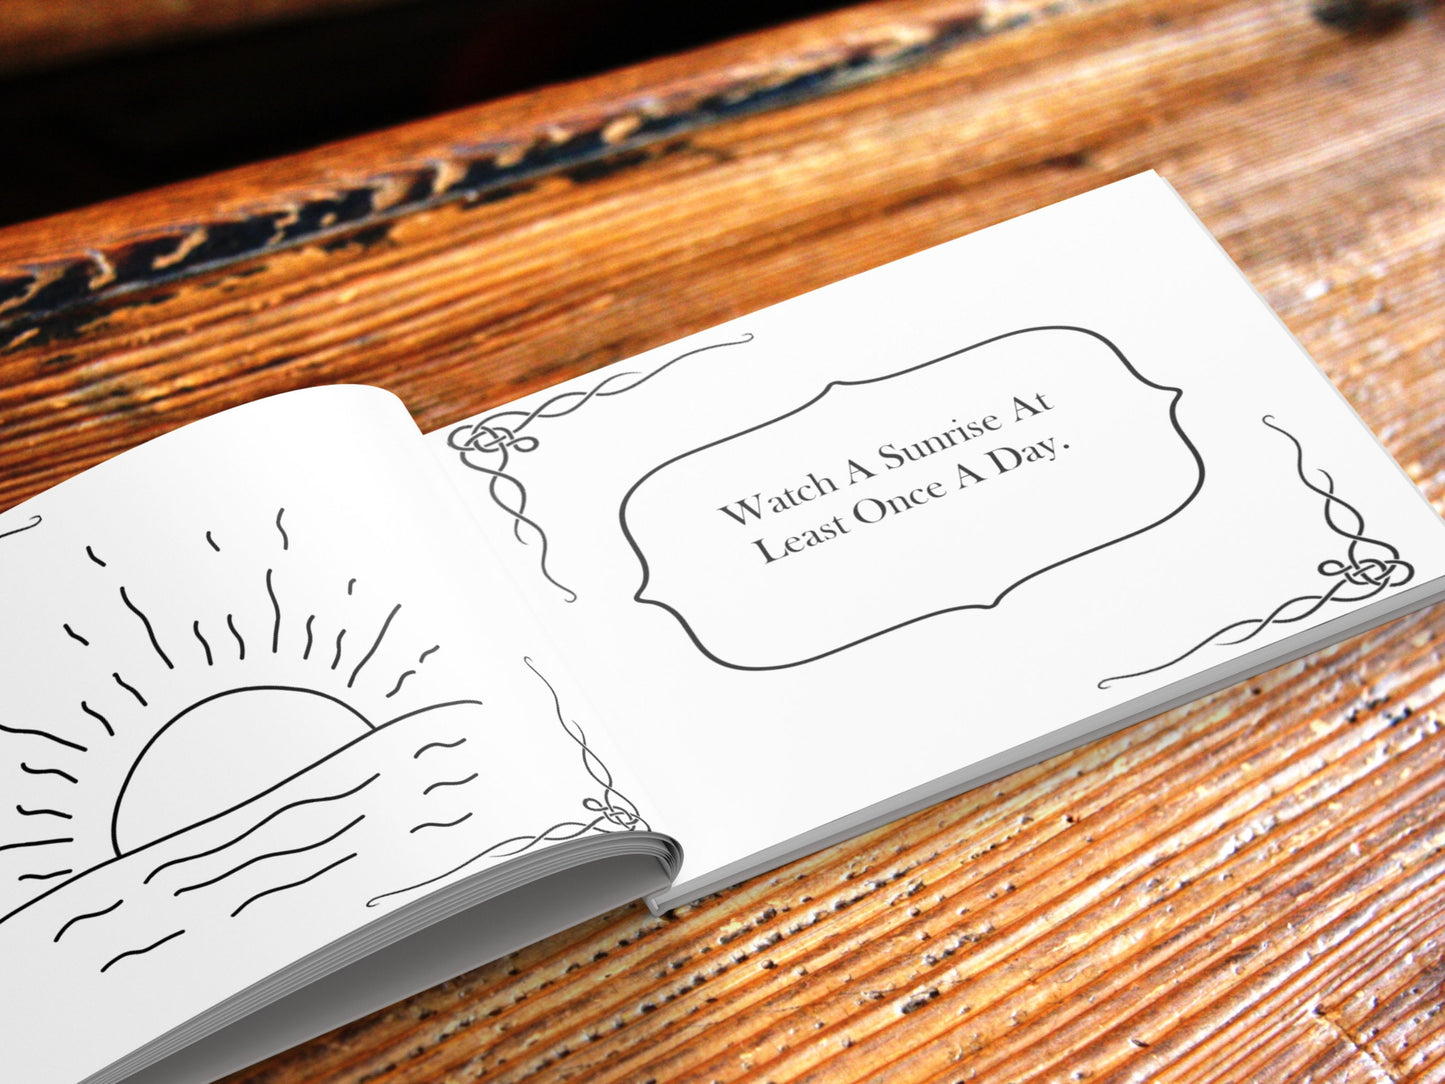 Watch A Sunrise At
Least Once A Day.